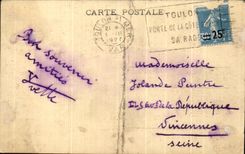 CARTE POSTALE
TOULON
PORTE DE LA CÔTE
SA RADE
1927
VAR
=25c
Bon souvenir
amitiés
Yvette
Mademoiselle
Yolande
de la République
Vincennes
Seine